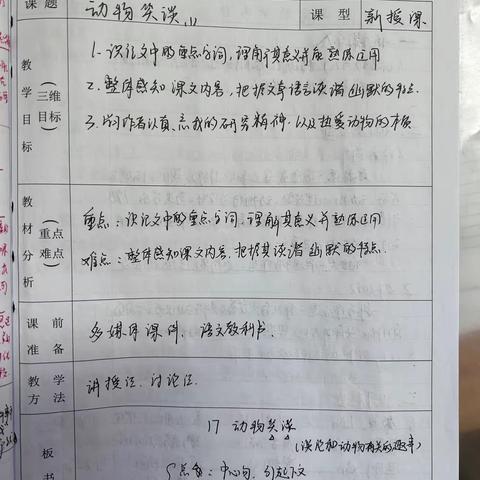 课题 动物笑谈 课型 新授课
教学目标（三维目标）
1. 识记文中的重点字词，理解其意义并能熟练运用
2. 整体感知课文内容，把握文章语言诙谐幽默的特点.
3. 学习作者认真、忘我的研究精神，以及热爱动物的本质
教材分析（重点难点）
重点：识记文中的重点字词，理解其意义并熟练运用
难点：整体感知课文内容，把握其诙谐幽默的特点.
课前准备 多媒体课件、语文教科书.
教学方法 讲授法、讨论法.
板书
17 动物笑谈
(谈论和动物有关的趣事)
总写：中心句，引起下文